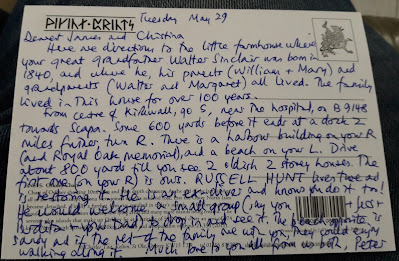 Tuesday May 29
Dearest James and Christina
Here are directions to the little farmhouse where
your great grandfather Walter Sinclair was born in
1840, and where he, his parents (William + Mary) and
grandparents (Walter and Margaret) all lived. The family
lived in this house for over 100 years.
From centre of Kirkwall, go S, near the hospital, on B9148
towards Scapa. Some 600 yards before it ends at a dock 2
miles further turn R. There is a harbour building on your R
(and Royal Oak memorial), and a beach on your L. Drive
about 800 yards till you see 2 oldish 2 storey houses. The
first one (on your R) is ours. RUSSELL HUNT lives there and
is restoring it. He is an ex-diver and knows how to do it too!
He would welcome a small group (say you +
+ your Dad) to drop in and see it. The beach opposite is
sandy and if the rest of the family are with you, they could enjoy
walking along it. Much love to you all from us both, Peter